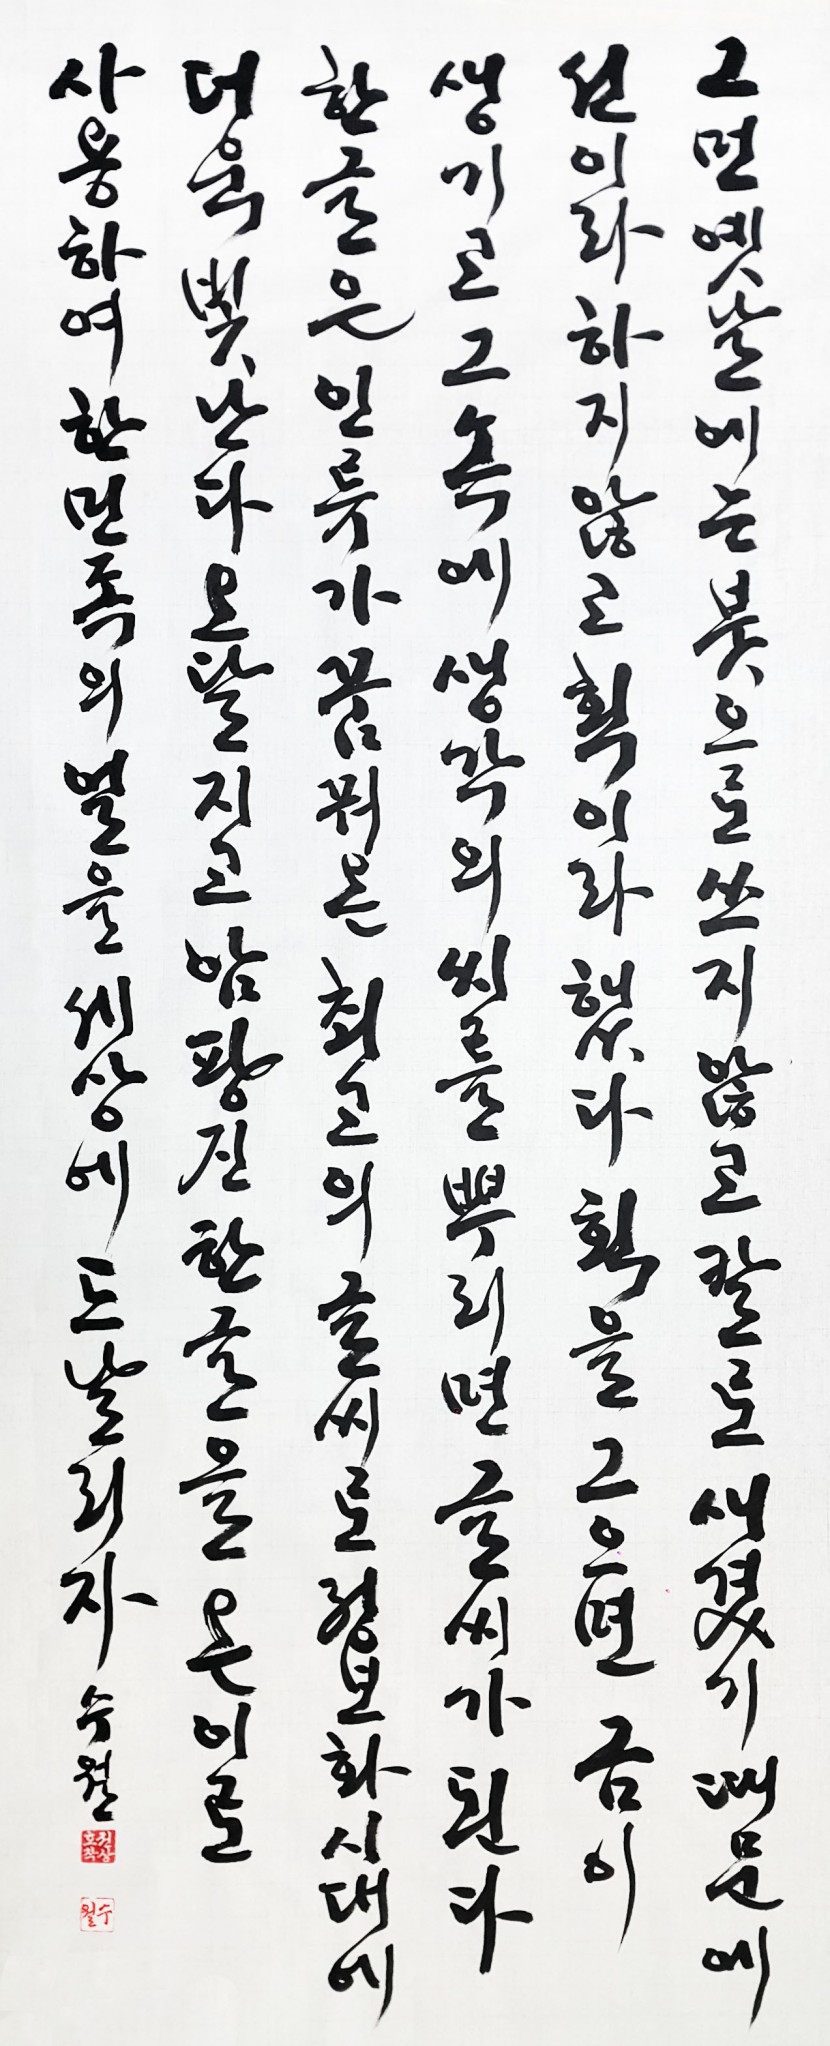 그 먼 옛날에는 붓으로 쓰지 않고 칼로 새겼기 때문에
선이라 하지 않고 획이라 했다 획을 그으면 금이
생기고 그 속에 생각의 씨를 뿌리면 글씨가 된다
한글은 인류가 꿈꿔온 최고의 글씨로 정보화 시대에
더욱 빛난다 오달지고 암팡진 한글을 온이로
사용하여 한민족의 얼을 세상에 드날리자 수월
권상호작
수월